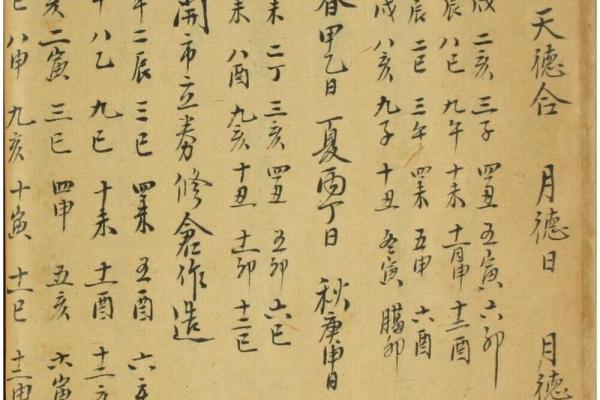 天德合 月德日 月德
戌 二亥 三子 四丑 五寅 六卯
辰 八巳 九午 十未 十一申 十二酉
辰 二巳 三午 四未 五申 六酉
戌 八亥 九子 十丑 冬寅 臘卯
春甲乙日 夏丙丁日 秋庚申日
未 二丁 三亥 四丑 五卯 六巳
未 八酉 九亥 十丑 十一卯 十二巳
開市立券修倉作造
二辰 三巳 四未 五酉 六
八乙 九巳 十未 十一酉 十二
亥 二寅 三巳 四申 五亥 六寅
巳 八申 九亥 十寅 十一巳 十二申